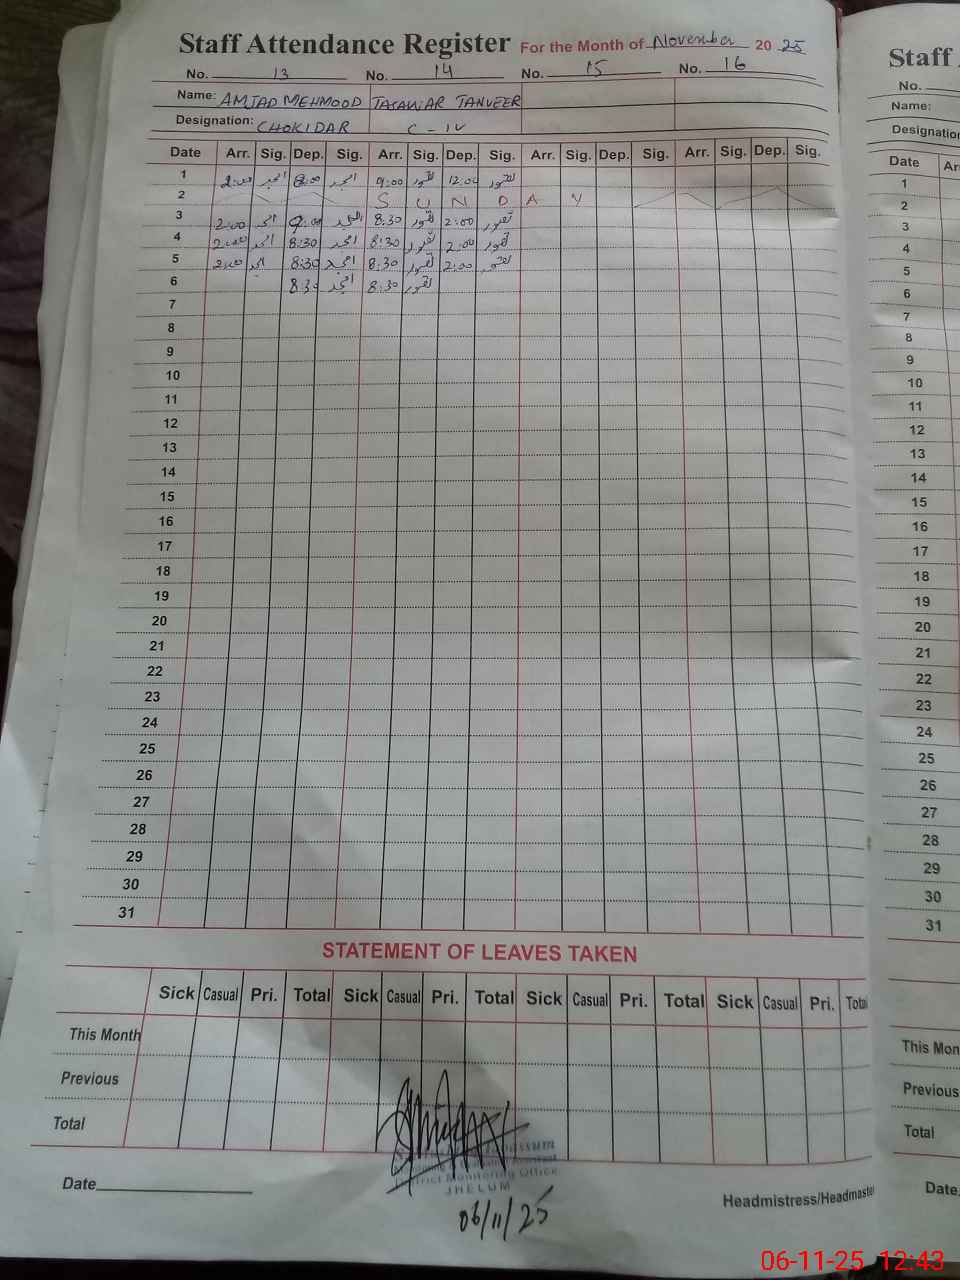 Staff Attendance Register For the Month of November 20 25
No. 13 No. 14 No. 15 No. 16
Name: AMJAD MEHMOOD TASAWAR TANVEER
Designation: CHOKIDAR C - IV
Date Arr. Sig. Dep. Sig. Arr. Sig. Dep. Sig. Arr. Sig. Dep. Sig. Arr. Sig. Dep. Sig.
1 2:00 امجد 8:00 امجد 9:00 12:00
2 S U N D A Y
3 2:00 امجد 9:00 امجد 8:30 2:00
4 2:00 امجد 8:30 امجد 8:30 2:00
5 2:00 امجد 8:30 امجد 8:30 2:00
6 8:30 امجد 8:30
7
8
9
10
11
12
13
14
15
16
17
18
19
20
21
22
23
24
25
26
27
28
29
30
31
STATEMENT OF LEAVES TAKEN
Sick Casual Pri. Total Sick Casual Pri. Total Sick Casual Pri. Total Sick Casual Pri. Total
This Month
Previous
Total
District Monitoring Office
JHELUM
Date
06/11/25
Headmistress/Headmaster
Staff
No.
Name:
Designation
Date Arr
1
2
3
4
5
6
7
8
9
10
11
12
13
14
15
16
17
18
19
20
21
22
23
24
25
26
27
28
29
30
31
This Mon
Previous
Total
Date
06-11-25 12:43